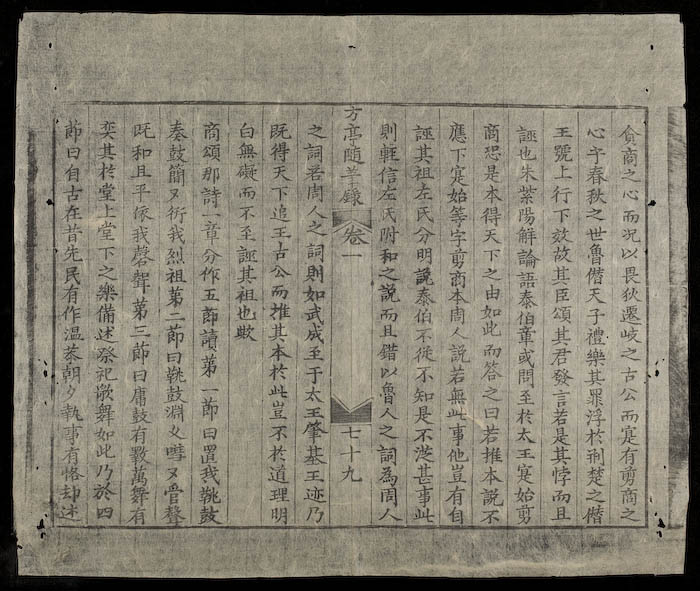 貪商之心而况以畏狄遷岐之古公而寔有剪商之
心乎春秋之世魯僣天子禮樂其罪浮於荆楚之僣
王號上行下效故其臣頌其君發言若是其悖而且
誣也朱紫陽解論語泰伯章或問至於太王寔始剪
商恐是本得天下之由如此而答之曰若推本說不
應下寔始等字剪商本周人說若無此事他豈有自
誣其祖左氏分明說泰伯不從不知是不從甚事此
則輕信左氏附和之說而且錯以魯人之詞為周人
方亭隨筆錄 卷一 七十九
之詞若周人之詞則如武成至于太王肇基王迹乃
既得天下追王古公而推其本於此豈不於道理明
白無礙而不至誣其祖也歟
商頌那詩一章分作五節讀第一節曰置我鞉鼓
奏鼓簡〻衎我烈祖第二節曰鞉鼓淵〻嘒〻管聲
既和且平依我磬聲第三節曰庸鼓有斁萬舞有
奕其於堂上堂下之樂備述祭祀歌舞如此乃於四
節曰自古在昔先民有作溫恭朝夕執事有恪却述